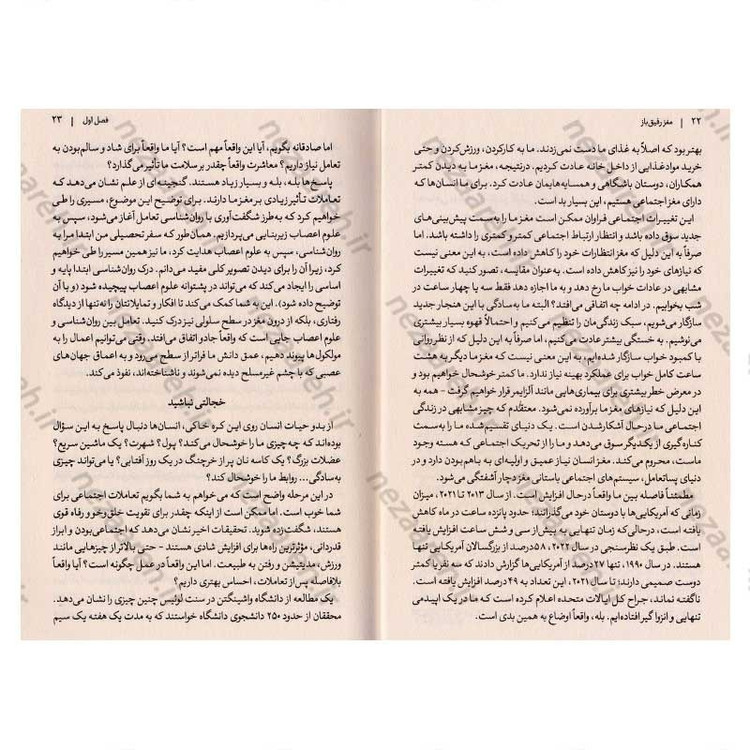 ۲۲ | مغز رفیق‌باز
بهتر بود که اصلاً به غذای ما دست نمی‌زدند. ما به کارکردن، ورزش‌کردن و حتی
خرید مواد غذایی از داخل خانه عادت کردیم. درنتیجه، مغز ما به دیدن کمتر
همکاران، دوستان باشگاهی و همسایه‌هایمان عادت کرد. برای ما انسان‌ها که
دارای مغز اجتماعی هستیم، این بسیار بد است.
این تغییرات اجتماعی فراوان ممکن است مغز ما را به‌سمت پیش‌بینی‌های
جدید سوق داده باشد و انتظار ارتباط اجتماعی کمتر و کمتری را داشته باشد. اما
صرفاً به این دلیل که مغز انتظارات خود را کاهش داده است، به این معنی نیست
که نیازهای خود را نیز کاهش داده است. به‌عنوان مقایسه، تصور کنید که تغییرات
مشابهی در عادات خواب ما رخ دهد و به ما اجازه دهد فقط سه یا چهار ساعت در
شب بخوابیم. در ادامه چه اتفاقی می‌افتد؟ البته ما به‌سادگی با این هنجار جدید
سازگار می‌شویم، سبک زندگی‌مان را تنظیم می‌کنیم و احتمالاً قهوه بسیار بیشتری
می‌نوشیم. به خستگی بیشتر عادت می‌کنیم، اما صرفاً به این دلیل که از نظر روانی
با کمبود خواب سازگار شده‌ایم، به این معنی نیست که مغز ما دیگر به هشت
ساعت کامل خواب برای عملکرد بهینه نیاز ندارد. ما کمتر خوشحال خواهیم بود و
در معرض خطر بیشتری برای بیماری‌هایی مانند آلزایمر قرار خواهیم گرفت - همه به
این دلیل که نیازهای مغز ما برآورده نمی‌شود. معتقدم که چیز مشابهی در زندگی
اجتماعی ما درحال آشکارشدن است. یک دنیای تقسیم‌شده ما را به‌سمت
کناره‌گیری از یکدیگر سوق می‌دهد و ما را از تحریک اجتماعی که هسته وجود
ماست، محروم می‌کند. مغز انسان نیاز عمیق و اولیه‌ای به باهم بودن دارد و در
دنیای پساتعامل، سیستم‌های اجتماعی باستانی مغز دچار آشفتگی می‌شود.
مطمئناً فاصله بین ما واقعاً درحال افزایش است. از سال ۲۰۱۳ تا ۲۰۲۱، میزان
زمانی که آمریکایی‌ها با دوستان خود می‌گذرانند؛ حدود پانزده ساعت در ماه کاهش
یافته است، درحالی‌که زمان تنهایی به بیش از سی و شش ساعت افزایش یافته
است. طبق یک نظرسنجی در سال ۲۰۲۲، ۵۸درصد از بزرگسالان آمریکایی تنها
هستند. در سال ۱۹۹۰، تنها ۲۷درصد از آمریکایی‌ها گزارش دادند که سه نفر یا کمتر
دوست صمیمی دارند؛ تا سال ۲۰۲۱، این تعداد به ۴۹ درصد افزایش یافته است.
ناگفته نماند، جراح کل ایالات متحده اعلام کرده است که ما در یک اپیدمی
تنهایی و انزوا گیر افتاده‌ایم. بله، واقعاً اوضاع به همین بدی است.
فصل اول | ۲۳
اما صادقانه بگویم، آیا این واقعاً مهم است؟ آیا ما واقعاً برای شاد و سالم‌بودن به
تعامل نیاز داریم؟ معاشرت واقعاً چقدر بر سلامت ما تأثیر می‌گذارد؟
پاسخ‌ها بله، بله و بسیار زیاد هستند. گنجینه‌ای از علم نشان می‌دهد که
تعاملات تأثیر زیادی بر مغز ما دارند. برای توضیح این موضوع، مسیری را طی
خواهیم کرد که به‌طرز شگفت‌آوری با روان‌شناسی تعامل آغاز می‌شود، سپس به
علوم اعصاب زیربنایی می‌پردازیم. همان‌طور که سفر تحصیلی من ابتدا مرا به
روان‌شناسی، سپس به علوم اعصاب هدایت کرد، ما نیز همین مسیر را طی خواهیم
کرد، زیرا آن را برای دیدن تصویر کلی مفید می‌دانم. درک روان‌شناسی ابتدا پایه و
اساسی را ایجاد می‌کند که می‌تواند در پشتوانه علوم اعصاب پیچیده شود (و با آن
توضیح داده شود). این به شما کمک می‌کند تا افکار و تمایلاتتان را نه‌تنها از دیدگاه
رفتاری، بلکه از درون مغز در سطح سلولی نیز درک کنید. تعامل بین روان‌شناسی و
علوم اعصاب جایی است که واقعاً جادو اتفاق می‌افتد. وقتی می‌توانیم اعمال را به
مولکول‌ها پیوند دهیم، عمق دانش ما فراتر از سطح می‌رود و به اعماق جهان‌های
عصبی که با چشم غیرمسلح دیده نمی‌شوند و ناشناخته‌اند، نفوذ می‌کند.
خجالتی نباشید
از بدو حیات انسان روی این کره خاکی، انسان‌ها دنبال پاسخ به این سؤال
بوده‌اند که چه‌چیزی ما را خوشحال می‌کند؟ پول؟ شهرت؟ یک ماشین سریع؟
عضلات بزرگ؟ یک کاسه نان پر از خرچنگ در یک روز آفتابی؟ یا می‌تواند چیزی
به‌سادگی... روابط ما را خوشحال کند؟
در این مرحله واضح است که می‌خواهم به شما بگویم تعاملات اجتماعی برای
شما خوب است. اما ممکن است از اینکه چقدر برای تقویت خلق‌وخو و رفاه قوی
هستند، شگفت‌زده شوید. تحقیقات اخیر نشان می‌دهد که اجتماعی‌بودن و ابراز
قدردانی، مؤثرترین راه‌ها برای افزایش شادی هستند - حتی بالاتر از چیزهایی مانند
ورزش، مدیتیشن و رفتن به طبیعت. اما این واقعاً در عمل چگونه است؟ آیا واقعاً
بلافاصله پس از تعاملات، احساس بهتری داریم؟
یک مطالعه از دانشگاه واشینگتن در سنت لوئیس چنین چیزی را نشان می‌دهد.
محققان از حدود ۲۵۰ دانشجوی دانشگاه خواستند که به مدت یک هفته یک سیم
nezaareh.ir